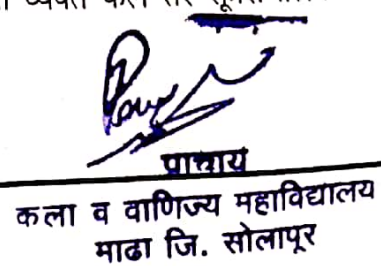 व्यक्त
प्राचार्य
कला व वाणिज्य महाविद्यालय
माढा जि. सोलापूर